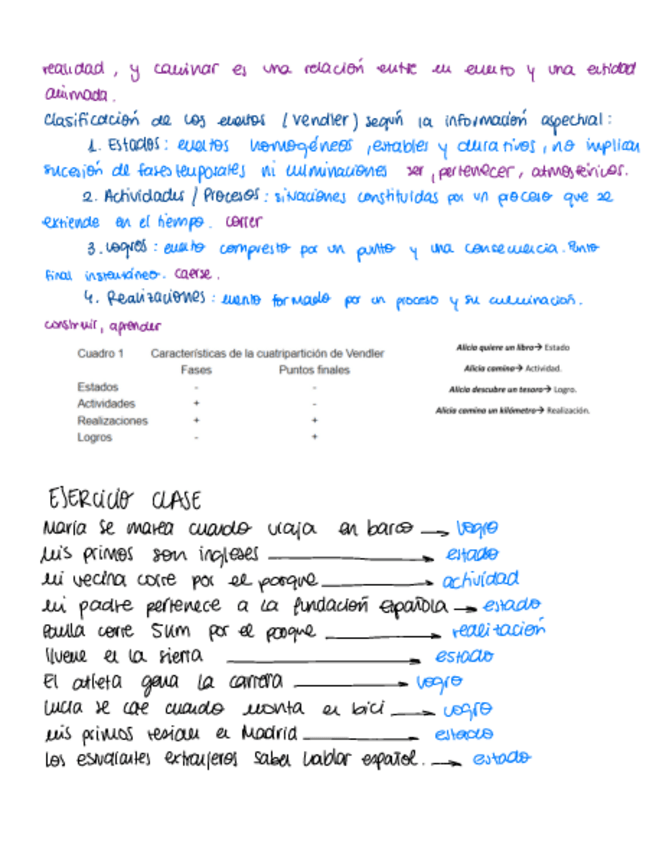 realidad, y caminar es una relación entre un evento y una entidad
animada.
Clasificación de los eventos (Vendler) según la información aspectual:
1. Estados: eventos homogéneos, estables y durativos, no implican
sucesión de fases temporales ni culminaciones ser, pertenecer, atmosféricos.
2. Actividades / Procesos: situaciones constituidas por un proceso que se
extiende en el tiempo. correr
3. Logros: evento compuesto por un punto y una consecuencia. Punto
final instantáneo. caerse.
4. Realizaciones: evento formado por un proceso y su culminación.
construir, aprender
Cuadro 1 Características de la cuatripartición de Vendler
Fases Puntos finales
Estados - -
Actividades + -
Realizaciones + +
Logros - +
Alicia quiere un libro→ Estado
Alicia camina→ Actividad.
Alicia descubre un tesoro→ Logro.
Alicia camina un kilómetro→ Realización.
EJERCICIO CLASE
María se marea cuando viaja en barco → logro
Mis primos son ingleses → estado
Mi vecina corre por el parque → actividad
Mi padre pertenece a la fundación española → estado
Paula corre 5km por el parque → realización
llueve en la sierra → estado
El atleta gana la carrera → logro
Lucía se cae cuando monta en bici → logro
Mis primos residen en Madrid → estado
Los estudiantes extranjeros saben hablar español. → estado